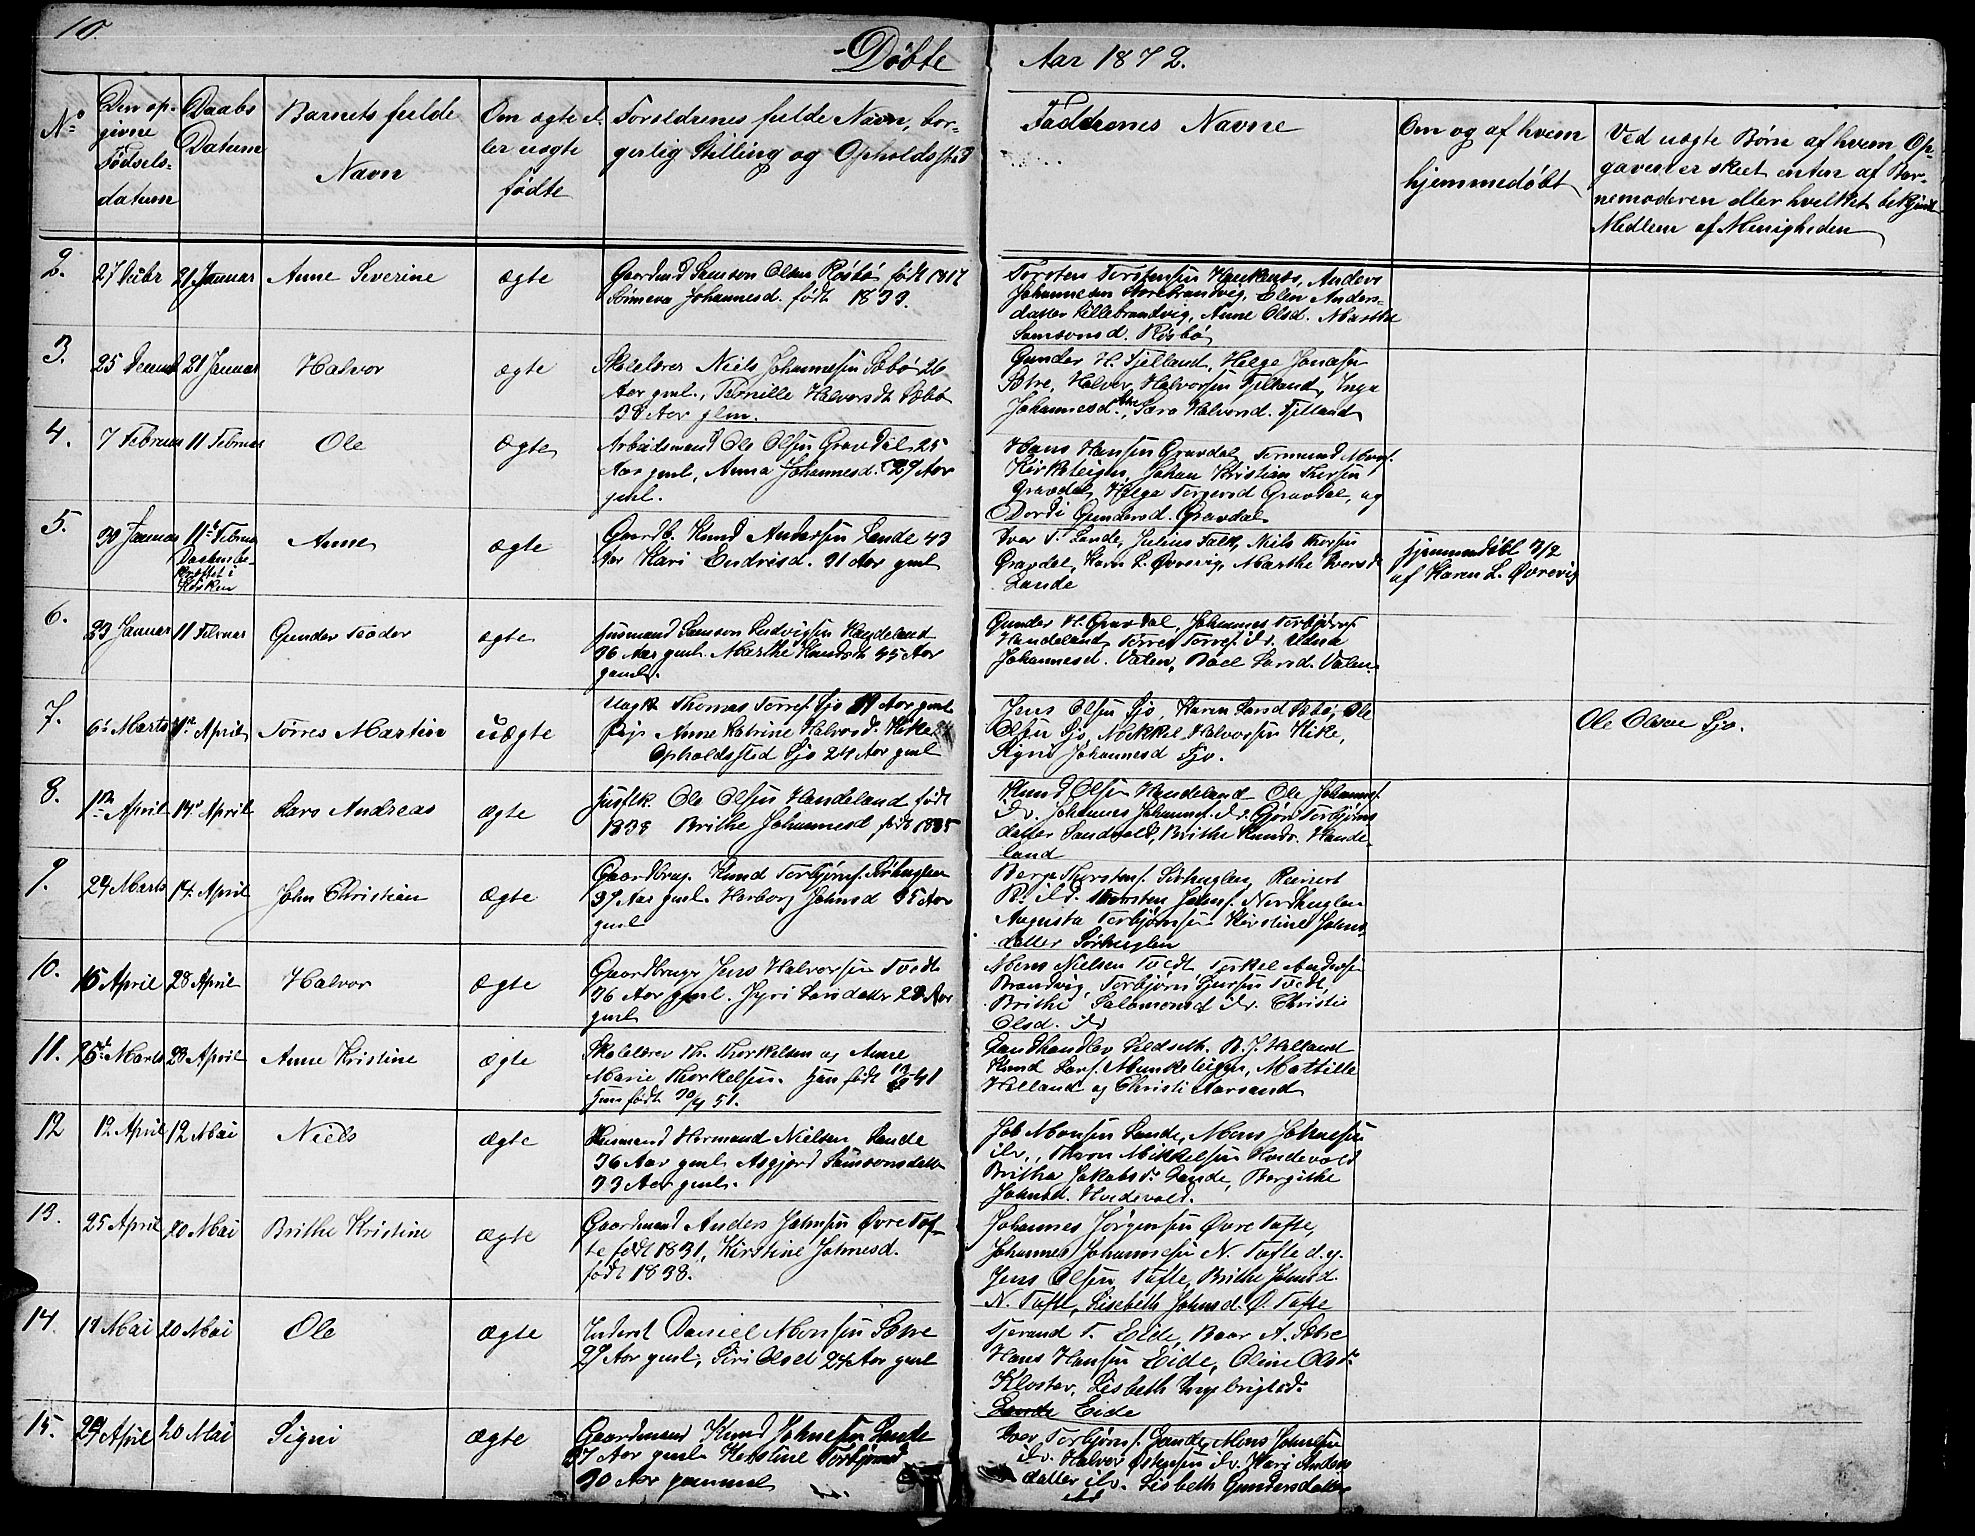 10.
Döbte Aar 1872.
No Den opgivne Fødselsdatum Daabs Datum Barnets fulde Navn Om ægte eller uægte fødte Forældrenes fulde Navn, borgerlig Stilling og Opholdssted Faddrenes Navne Om og af hvem hjemmedøbt Ved uægte Børn af hvem Opgaven er skeet enten af Barnemoderen eller hvilket bekjendt Medlem af Menigheden
2. 27 Decbr 21 Januar Anne Severine ægte
Gaardmd Samson Olsen Røsbø født 1817
Johannesd. født 1833.
Torsten Torstensen Haukanes, Anders
Johannesen Storebrandvig, Elen Anders-
datter Lillebrandvig, Anne Olsd. Marthe
Samsonsd. Røsbø
3. 25 Decemb 21 Januar Halvor ægte
Skolelærer Niels Johannesen Sæbø 26
Aar gml., Pernille Halvorsdt Sæbø
38 Aar glm.
Gunder H. Fjelland, Helge Jonasen
Halvor Halvorsen Fjelland, Inga
Johannesd. Sara Halvorsd. Fjelland
4. 7 Februar 11 Februar Ole ægte
Arbeidsmand Ole Olsen Gravdal 25
Aar gml, Anna Johannesd. 29 Aar
gml.
Hans Hansen Gravdal, Tormund
Johan Kristian
Gravdal, Helga Gravdal, og
Dordi Gundersd. Gravdal
5. 30 Januar 11te Februar Anne ægte
Daaben be-
kræftet i
Kirken
Gaardb. Knud Andersen Sande 43
Aar Kari Endresd. 31 Aar gml
Iver T. Sande, Julius Falk, Niels
Gravdal, Karen L. Øvrevig, Marthe Iversd
Sande
hjemmedøbt 3/2
af Karen L. Øvrevig
6. 23 Januar 11 Februar Gunder Teodor ægte
Husmand Samson Ludvigsen Handeland
36 Aar gml. Marthe Knudsdt 35 Aar
gaml.
Gunder H. Gravdal, Johannes Torbjørns.
Handeland,
Johannesd. Valen, Larsd. Valen
7. 6te Marts 1ste April Torres Martin uægte
Ungk. Thomas Torres. Sjo Aar gml
Pige Anne Katrine Halvorsd.
Opholdssted Sjo 24 Aar gml
Jens Olsen Sjo, Karen Larsd Sæbø, Ole
Olsen Sjo, Halvorsen
Johannesd Sjo.
Ole Olsen Sjo.
8. 1ste April 14de April Lars Andreas ægte
Husflk. Ole Olsen Handeland født
1838 Brithe Johannesd født 1835
Knud Olsen Handeland Ole Johannes.
Johannes Johannes. Torbjørns
datter Sandvold, Brithe Knuds. Hande-
land
9. 24 Marts 14 April John Christian ægte
Gaardbrug. Knud Torbjørns. Sørhuglen
37 Aar gml. Herborg Johnsd 35 Aar
gml
Thorstens. Sørhuglen, Reinert
Thorsten Johns. Nordhuglen
Augusta Torbjørnsen Kirstine Johns
datter Sørhuglen
10. 15 April 28 April Halvor ægte
Gaardbrugr Jens Halvorsen Tvedt
36 Aar gml. Larsdatter 28 Aar
gml
Mons Nielsen Tvedt, Anders
Brandvig, Torbjørn Tvedt,
Brithe Salomonsd Christi
Olsd.
11. 25de Marts 28 April Anne Kristine ægte
Skolelærer Th. Thorkelsen og Anne
Marie Thorkelsen. Han født 41
Hun født 30/4 51.
Landhandler B. J. Helland
Knud Lars. Munketeigen, Mathilde
Helland og Christi Aarsand
12 12 April 12 Mai Niels ægte
Husmand Hermand Nielsen Sande
36 Aar gml Asgjerd Samsonsdatter
33 Aar gml.
Job Monsen Sande, Mons Johnesen
Mikkelsen Hordevold
Britha Jakobsd. Sande, Bergithe
Johnsd. Hordevold.
13. 25 April 20 Mai Brithe Kristine ægte
Gaardmand Anders Johnsen Øvre Taf-
te født 1831, Kirstine Johnesd.
født 1838.
Johannes Jørgensen Øvre Tafte,
Johannes Johannesen N. Tafte d.y.
Jens Olsen Tafte, Brithe Johnsd.
N. Tafte, Lisebeth Johnsd. Ø. Tafte
14. 11 Mai 20 Mai Ole ægte
Inderst Daniel Monsen Sætre
29 Aar gml, Siri Olsd 24 Aar gml
Tjerand T. Eide, Baar A. Sætre
Hans Hansen Eide, Oline Olsd.
Kloster, Lisbeth Ingebrigtsd.
Sande Eide
15. 29 April 20 Mai Signi ægte
Gaardmand Knud Johnesen Sande
37 Aar gml Kirstine Torbjørnsd
30 Aar gammel
Iver Torbjørns. Sande, Mons Johnesen
Halvor Østensen Kari Anders
datter Lisbeth Gundersdatter